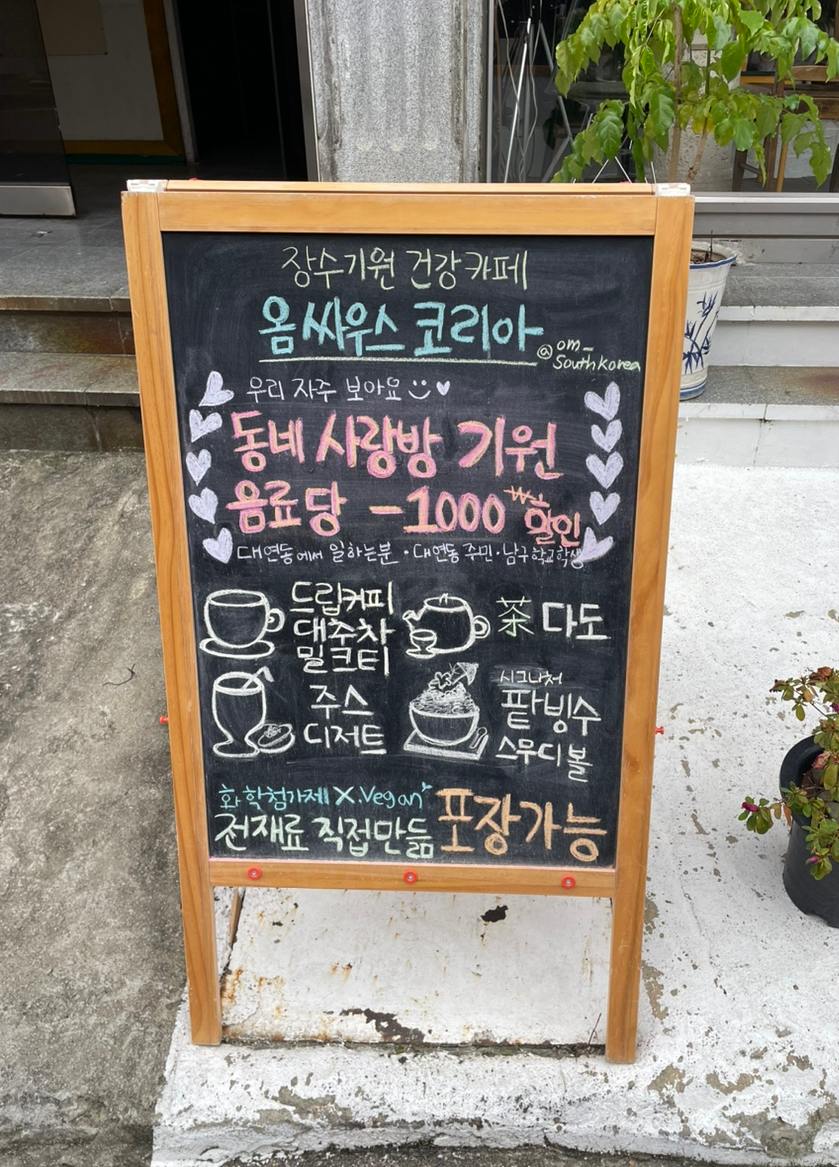 장수기원 건강카페
옴싸우스 코리아
@om_
Southkorea
우리 자주 보아요
동네 사랑방 기원
음료당 -1000₩ 할인
대연동에서 일하는분 · 대연동 주민 · 남구 학교 학생
드립커피
대추차
밀크티
茶 다도
주스
디저트
시그니처
팥빙수
스무디볼
화학첨가제 X. Vegan
전재료 직접만듦
포장가능